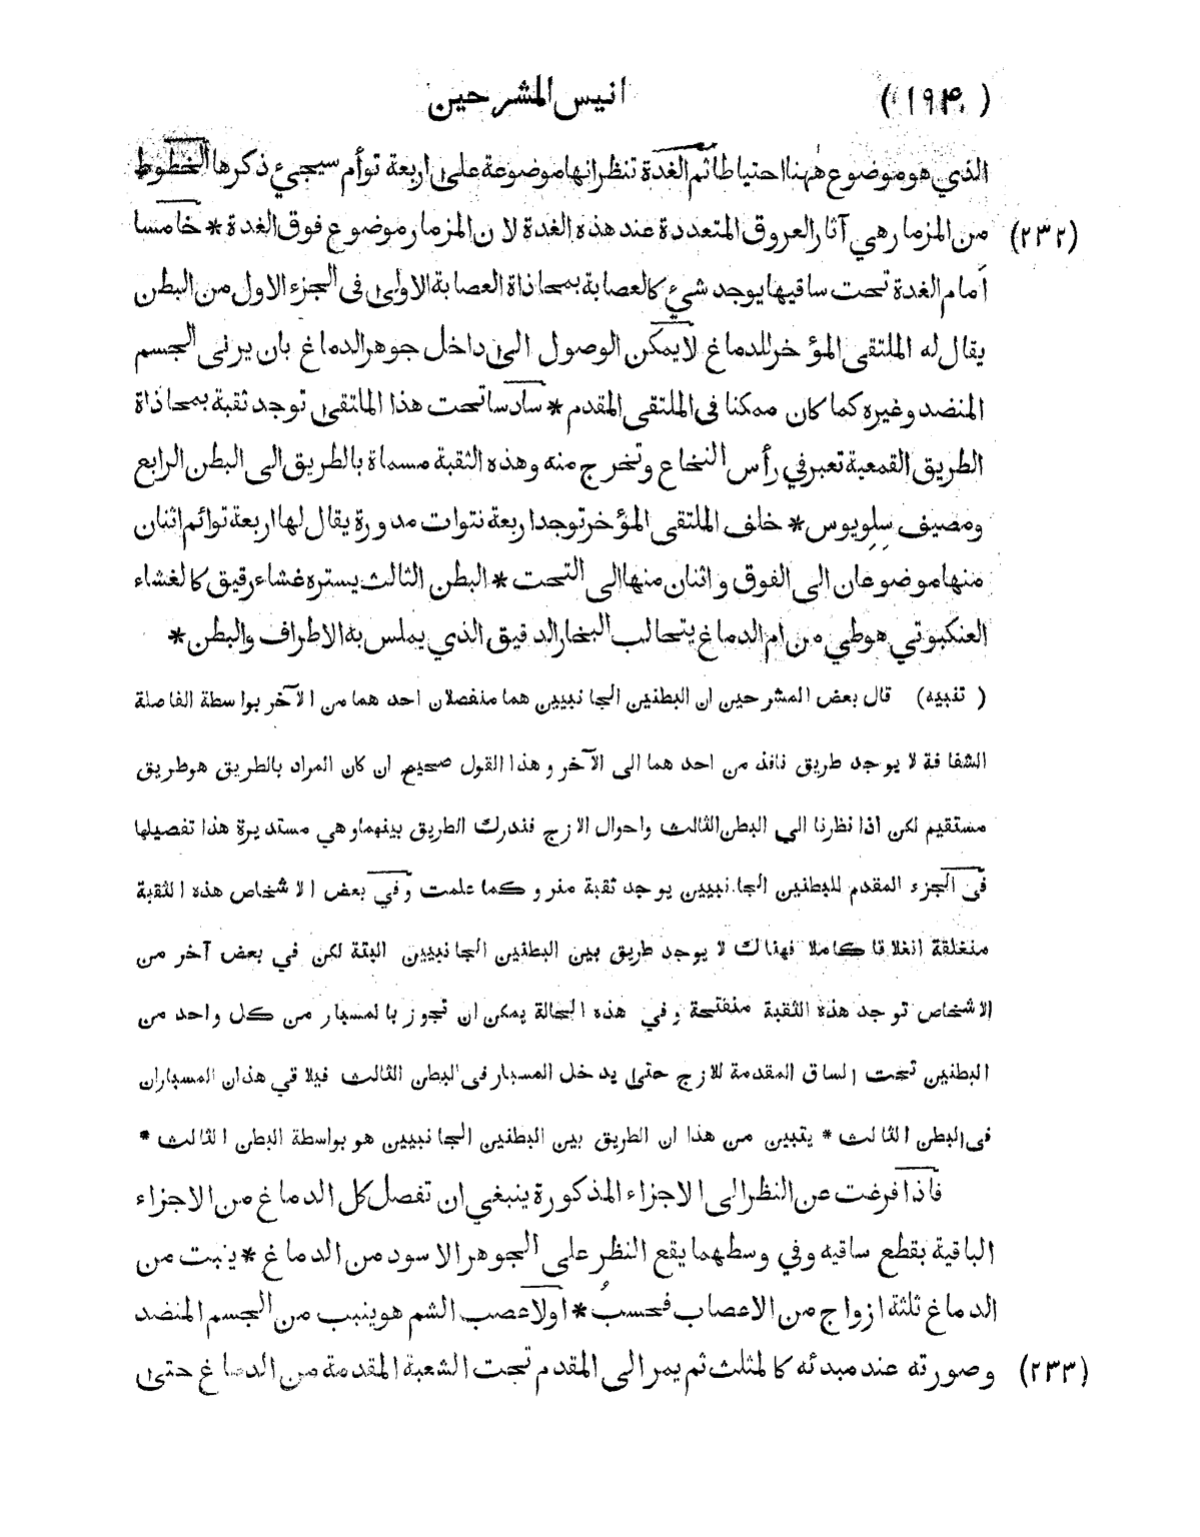 (١٩۴) انيس المشرحين
الذي هو موضوع ههنا احتياطا ثم الغدة تنظر انها موضوعة على اربعة توأم سيجيء ذكرها الخطوط
(٢٣٢) من المزمار هي آثار العروق المتعددة عند هذه الغدة لان المزمار موضوع فوق الغدة * خامسا
أمام الغدة تحت ساقيها يوجد شيء كالعصابة بمحاذاة العصابة الاولى فى الجزء الاول من البطن
يقال له الملتقى المؤخر للدماغ لا يمكن الوصول الى داخل جوهر الدماغ بان يرنى الجسم
المنضد وغيره كما كان ممكنا فى الملتقى المقدم * سادسا تحت هذا الملتقى توجد ثقبة بمحاذاة
الطريق القمعية تعبر في رأس النخاع وتخرج منه وهذه الثقبة مسماة بالطريق الى البطن الرابع
ومصيف سلويوس * خلف الملتقى المؤخر توجد اربعة نتوات مدورة يقال لها اربعة توائم اثنان
منها موضوعان الى الفوق واثنان منها الى التحت * البطن الثالث يستره غشاء رقيق كالغشاء
العنكبوتي هو طي من ام الدماغ يتحالب البخار الدقيق الذي يملس به الاطراف والبطن *
( تنبيه ) قال بعض المشرحين ان البطنين الجانبيين هما منفصلان احدهما من الآخر بواسطة الفاصلة
الشفافة لا يوجد طريق نافذ من احدهما الى الآخر وهذا القول صحيح ان كان المراد بالطريق هو طريق
مستقيم لكن اذا نظرنا الى البطن الثالث واحوال الازج فندرك الطريق بينهما وهي مستديرة هذا تفصيلها
فى الجزء المقدم للبطنين الجانبيين يوجد ثقبة منرو كما علمت وفي بعض الاشخاص هذه الثقبة
منغلقة انغلاقا كاملا فهناك لا يوجد طريق بين البطنين الجانبيين البتة لكن في بعض آخر من
الاشخاص توجد هذه الثقبة منفتحة وفي هذه الحالة يمكن ان تجوز بالمسبار من كل واحد من
البطنين تحت الساق المقدمة للازج حتى يدخل المسبار فى البطن الثالث فيلاقي هذان المسباران
فى البطن الثالث * يتبين من هذا ان الطريق بين البطنين الجانبيين هو بواسطة البطن الثالث *
فاذا فرغت عن النظر الى الاجزاء المذكورة ينبغي ان تفصل كل الدماغ من الاجزاء
الباقية بقطع ساقيه وفي وسطهما يقع النظر على الجوهر الاسود من الدماغ * ينبت من
الدماغ ثلثة ازواج من الاعصاب فحسبُ * اولا عصب الشم هو ينبب من الجسم المنضد
(٢٣٣) وصورته عند مبدئه كالمثلث ثم يمر الى المقدم تحت الشعبة المقدمة من الدماغ حتى